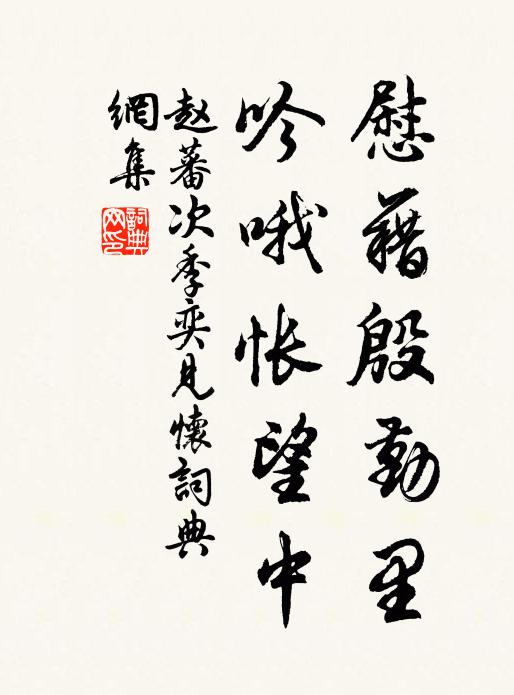 慰藉殷勤里
吟哦怅望中
赵蕃次季奕見懷詞典
網集
詞典网印